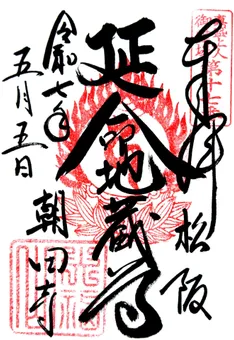 奉拝 松阪
延命地蔵尊
令和七年
五月五日
朝田寺